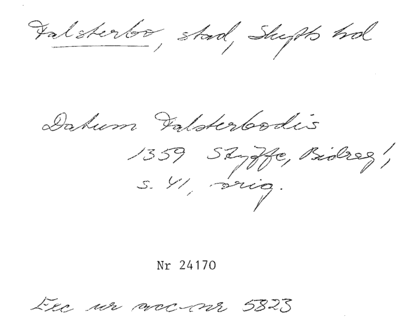 Falsterbo, stad, Skytts hd
Datum Falsterbodis
1359 Styffe, Bidrag 1,
s. 41, orig.
Nr 24170
Exc ur acc-nr 5823